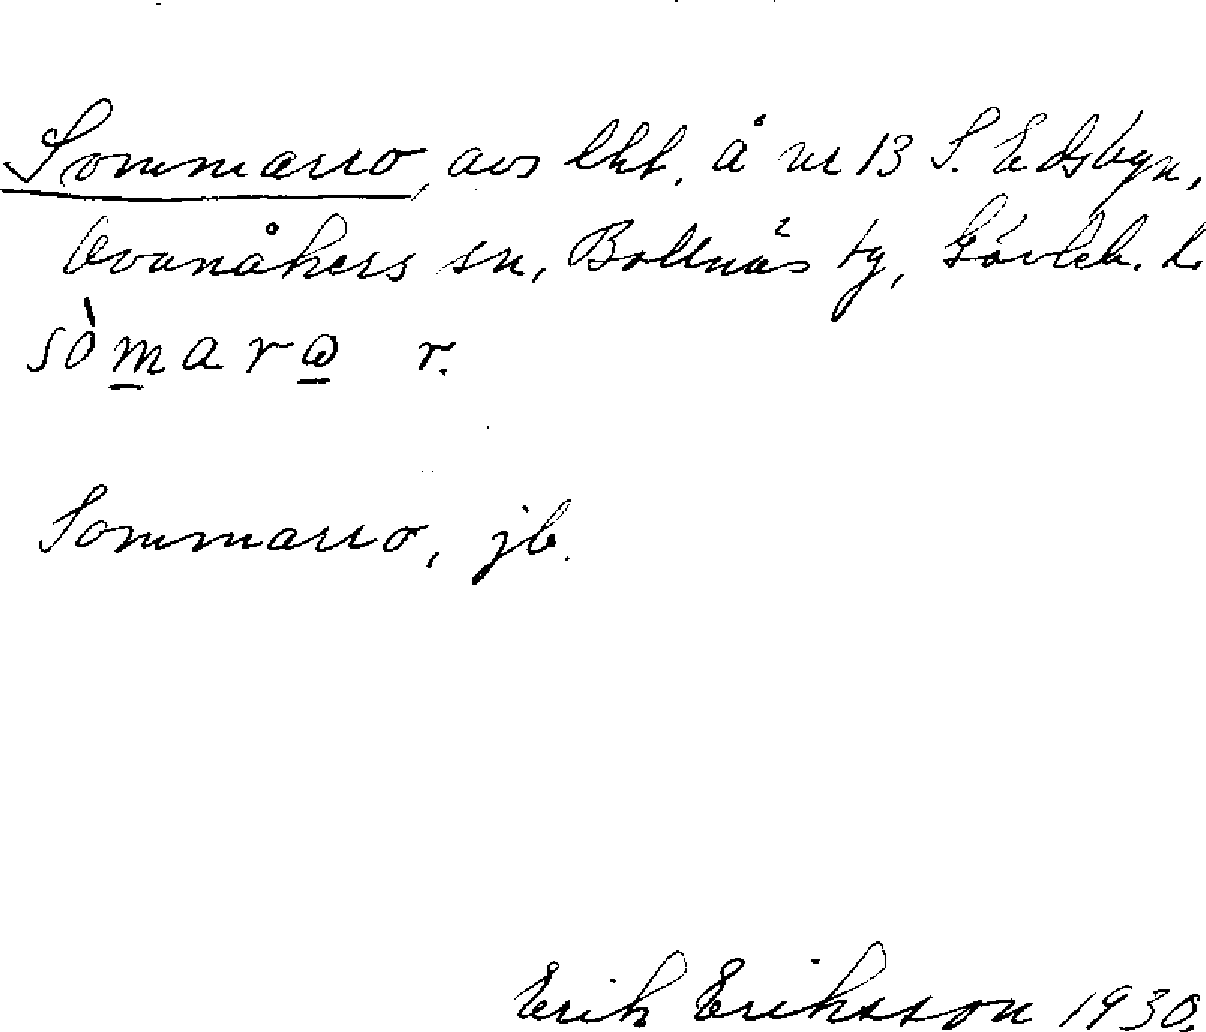 Sommarro, avs lht. å nr 13 S. Edsbyn,
Ovanåkers sn, Bollnäs tg, Gävleb. l.
sòmarɷ r.
Sommarro, jb.
Erik Eriksson 1930.